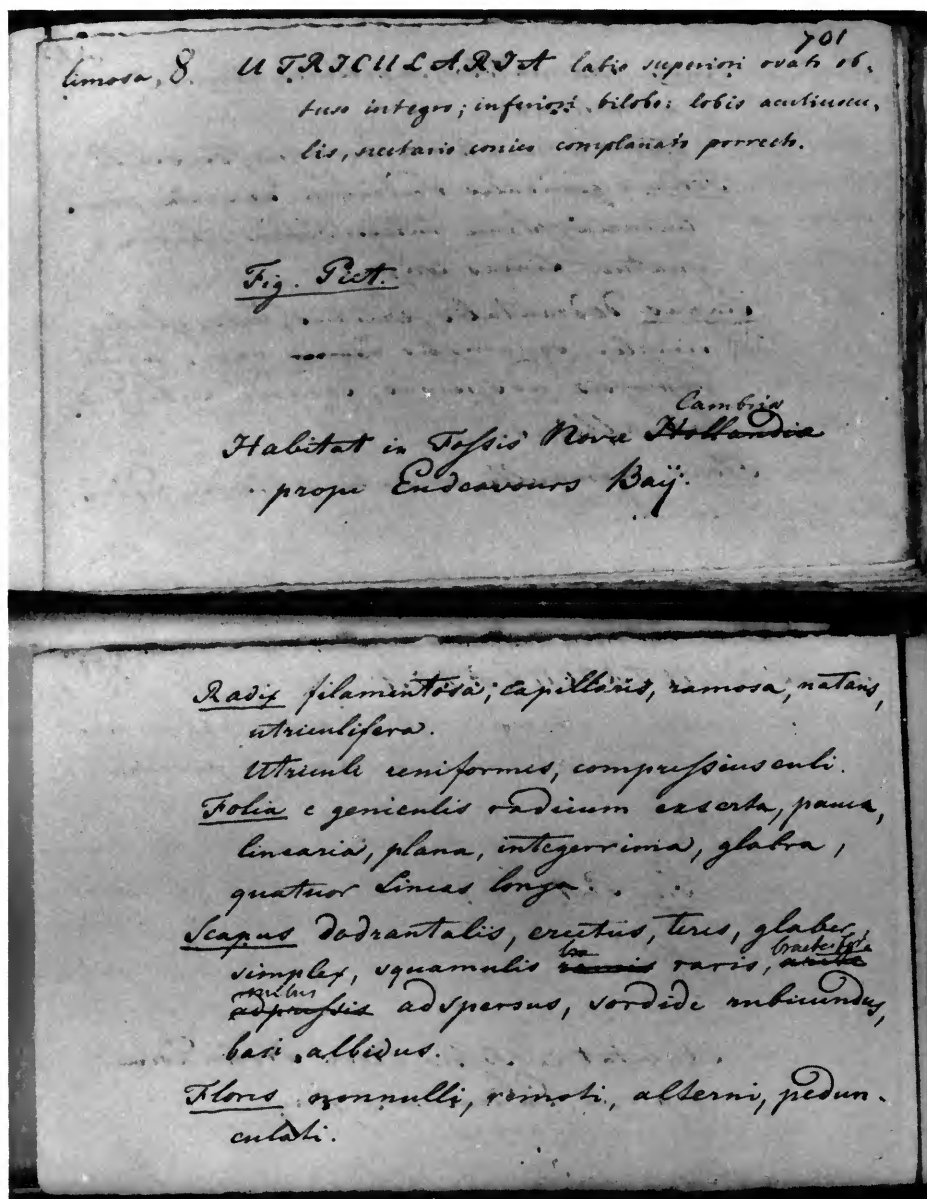 701
limosa, 8. UTRICULARIA labio superiori ovato ob-
tuso integro; inferiori bilobo: lobis acutiuscu-
lis, nectario conico complanato porrecto.
Fig. Pict.
Cambria
Habitat in Fossis Nova Hollandia
prope Endeavours Baij.
Radix filamentosa, capillaris, ramosa, natans,
utriculifera.
Utriculi reniformes, compressiusculi.
Folia e geniculis radicum exserta, pauca,
linearia, plana, integerrima, glabra,
quatuor Lineas longa.
Scapus dodrantalis, erectus, teres, glaber,
simplex, squamulis raris, bracteifor
mibus
adpressis adspersus, sordide rubicundus,
basi albidus.
Flores nonnulli, remoti, alterni, pedun-
culati.